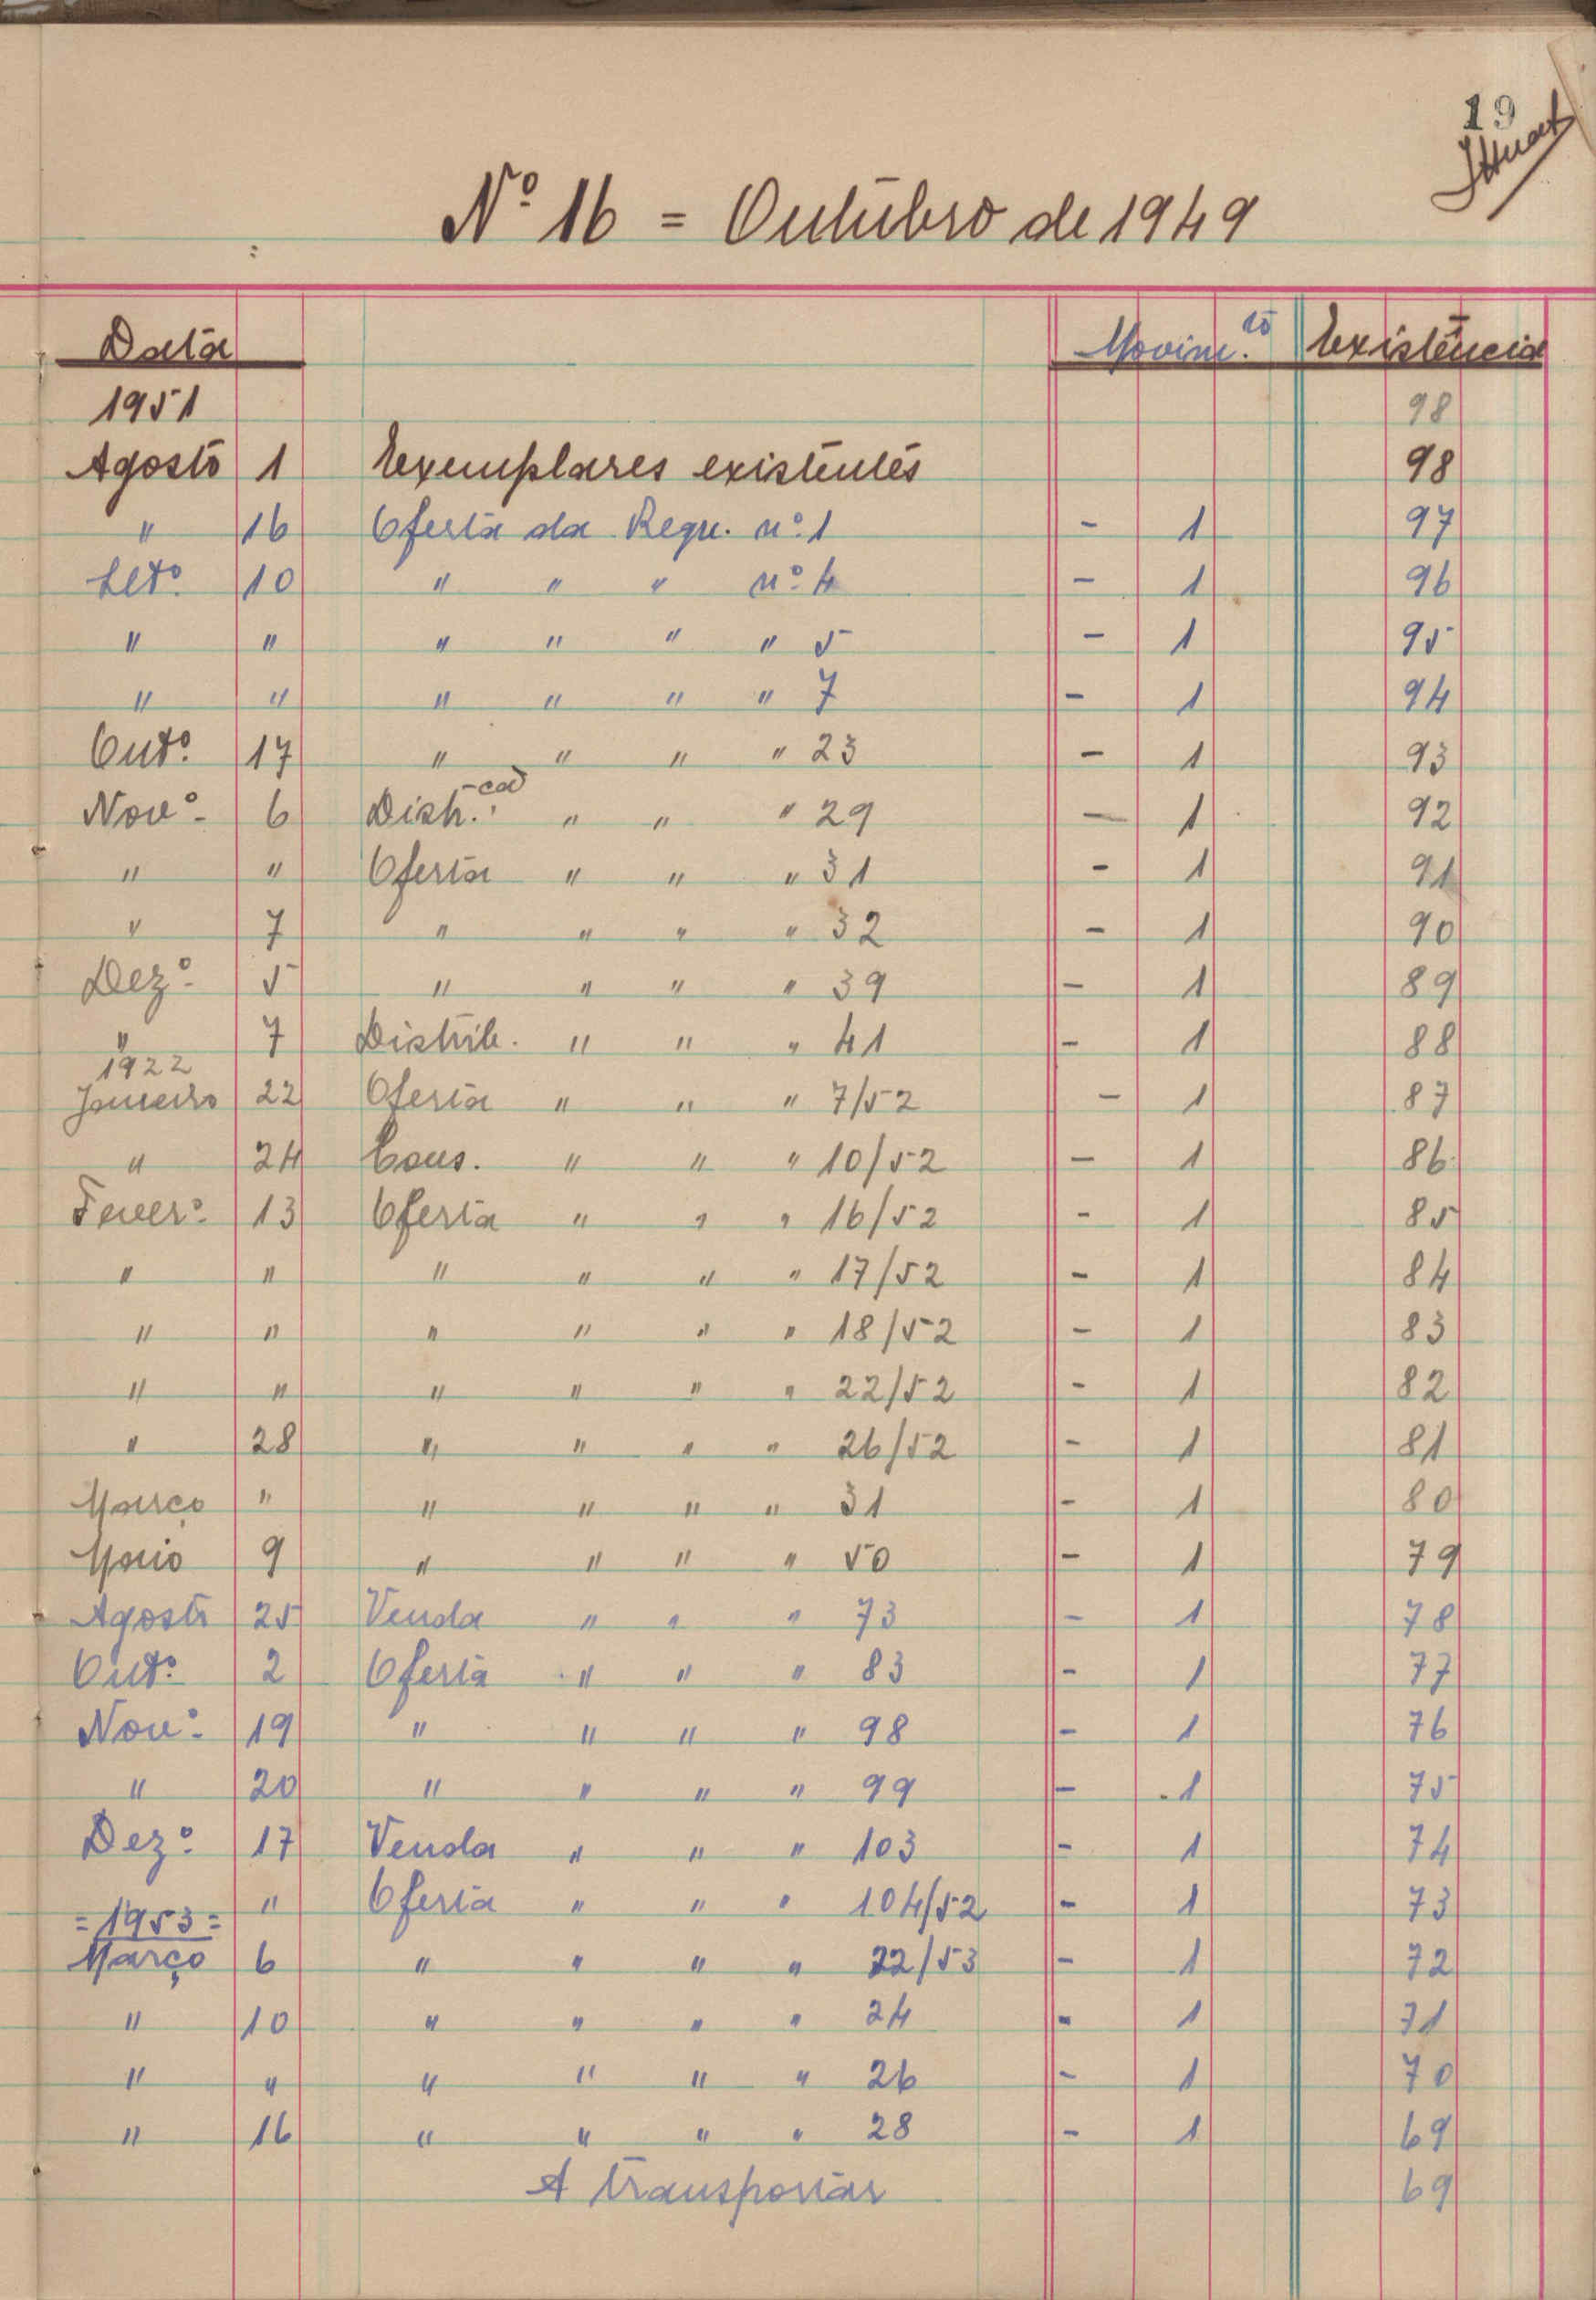 19
Nº 16 = Outubro de 1949
Data Movim.to Existência
1951 98
Agosto 1 Exemplares existentes 98
" 16 Oferta da Requ. nº 1 - 1 97
Setº 10 " " " nº 4 - 1 96
" " " " " " 5 - 1 95
" " " " " " 7 - 1 94
Outº 17 " " " " 23 - 1 93
Novº 6 Distr.cad " " " 29 - 1 92
" " Oferta " " " 31 - 1 91
" 7 " " " " 32 - 1 90
Dezº 5 " " " " 39 - 1 89
" 7 Distrib. " " " 41 - 1 88
1922
Janeiro 22 Oferta " " " 7/52 - 1 87
" 24 Cons. " " " 10/52 - 1 86
Feverº 13 Oferta " " " 16/52 - 1 85
" " " " " " 17/52 - 1 84
" " " " " " 18/52 - 1 83
" " " " " " 22/52 - 1 82
" 28 " " " " 26/52 - 1 81
Março " " " " " 31 - 1 80
Maio 9 " " " " 50 - 1 79
Agosto 25 Venda " " " 73 - 1 78
Outº 2 Oferta " " " 83 - 1 77
Novº 19 " " " " 98 - 1 76
" 20 " " " " 99 - 1 75
Dezº 17 Venda " " " 103 - 1 74
" Oferta " " " 104/52 - 1 73
= 1953 =
Março 6 " " " " 22/53 - 1 72
" 10 " " " " 24 - 1 71
" " " " " " 26 - 1 70
" 16 " " " " 28 - 1 69
A transportar 69